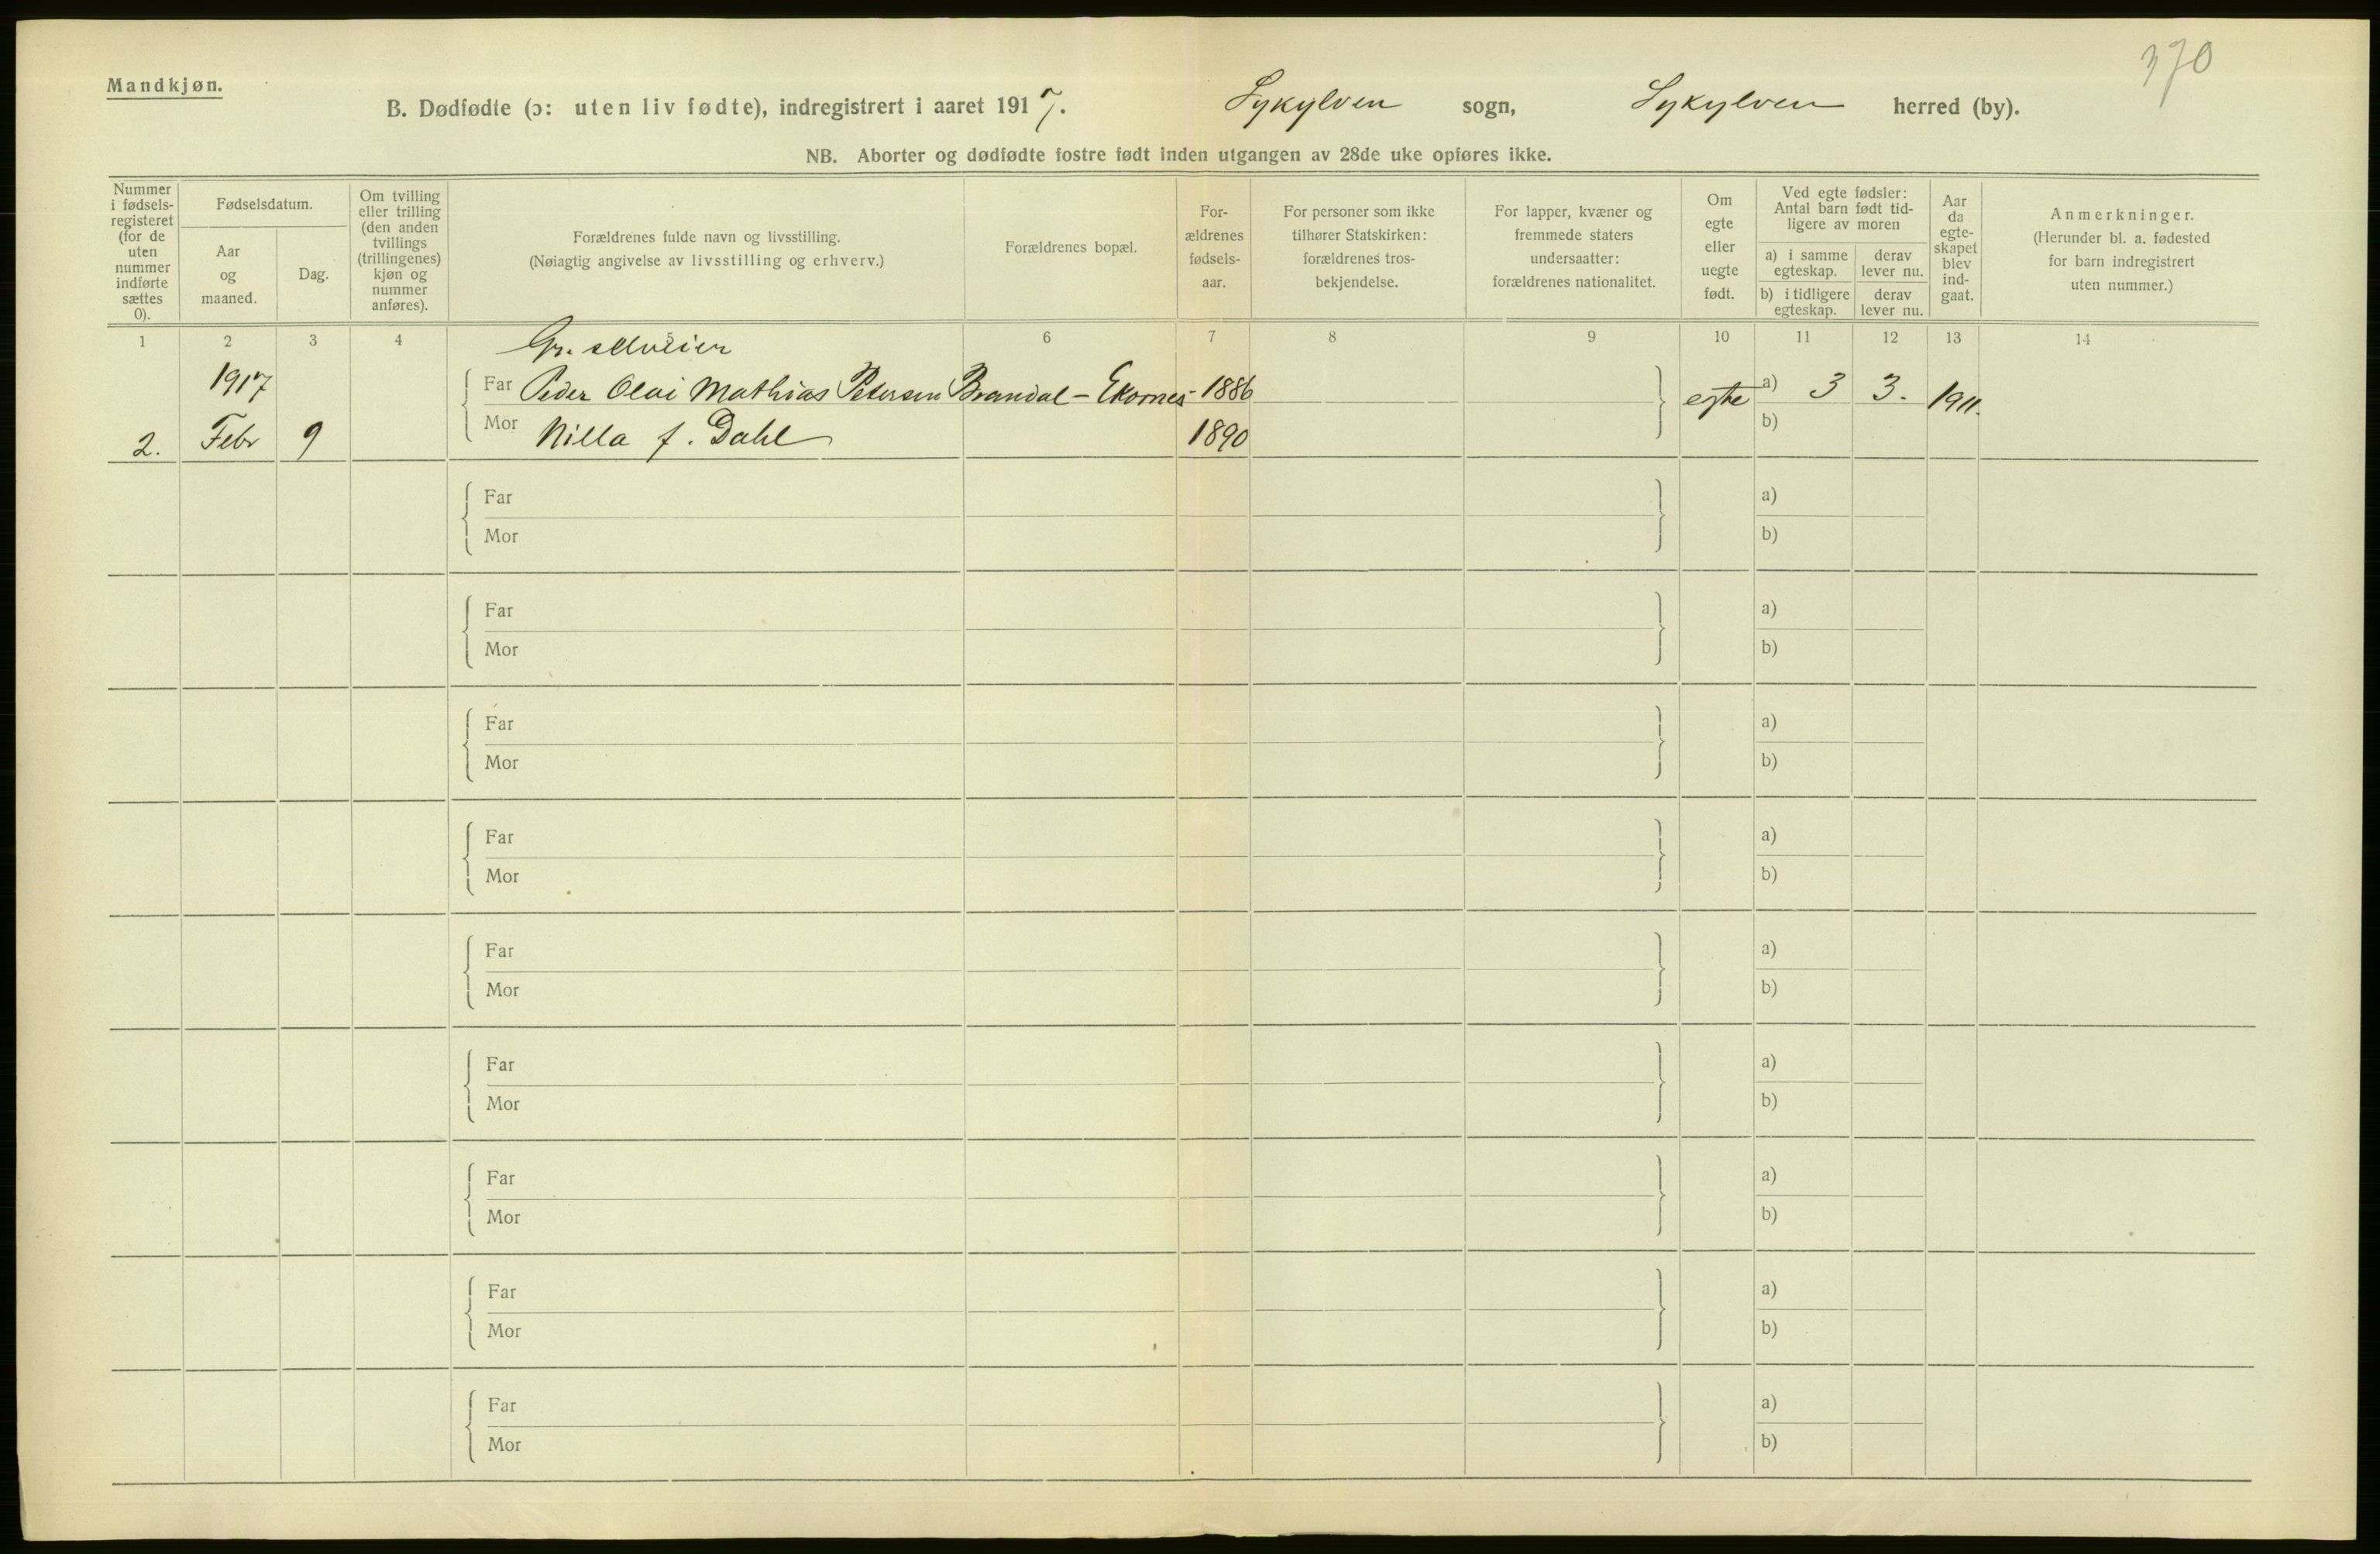 370
Mandkjøn.
B. Dødfødte (ɔ: uten liv fødte), indregistrert i aaret 1917. Sykylven sogn, Sykylven herred (by).
NB. Aborter og dødfødte fostre født inden utgangen av 28de uke opføres ikke.
Nummer
i fødsels-
registeret
(for de
uten
nummer
indførte
sættes
0).
Fødselsdatum.
Aar
og
maaned.
Dag.
Om tvilling
eller trilling
(den anden
tvillings
(trillingenes)
kjøn og
nummer
anføres).
Forældrenes fulde navn og livsstilling.
(Nøiagtig angivelse av livsstilling og erhverv.)
Forældrenes bopæl.
For-
ældrenes
fødsels-
aar.
For personer som ikke
tilhører Statskirken:
forældrenes tros-
bekjendelse.
For lapper, kvæner og
fremmede staters
undersaatter:
forældrenes nationalitet.
Om
egte
eller
uegte
født.
Ved egte fødsler:
Antal barn født tid-
ligere av moren
a) i samme
egteskap.
derav
lever nu.
b) i tidligere
egteskap.
derav
lever nu.
Aar
da
egte-
skapet
blev
ind-
gaat.
Anmerkninger.
(Herunder bl. a. fødested
for barn indregistrert
uten nummer.)
1 2 3 4 6 7 8 9 10 11 12 13 14
Gr. selveier
1917 Far Peder Olai Mathias Petersen Brandal - Ekornes - 1886 egte a) 3 3. 1911.
2. Febr 9 Mor Nilla f. Dahl 1890 b)
Far a)
Mor b)
Far a)
Mor b)
Far a)
Mor b)
Far a)
Mor b)
Far a)
Mor b)
Far a)
Mor b)
Far a)
Mor b)
Far a)
Mor b)
Far a)
Mor b)